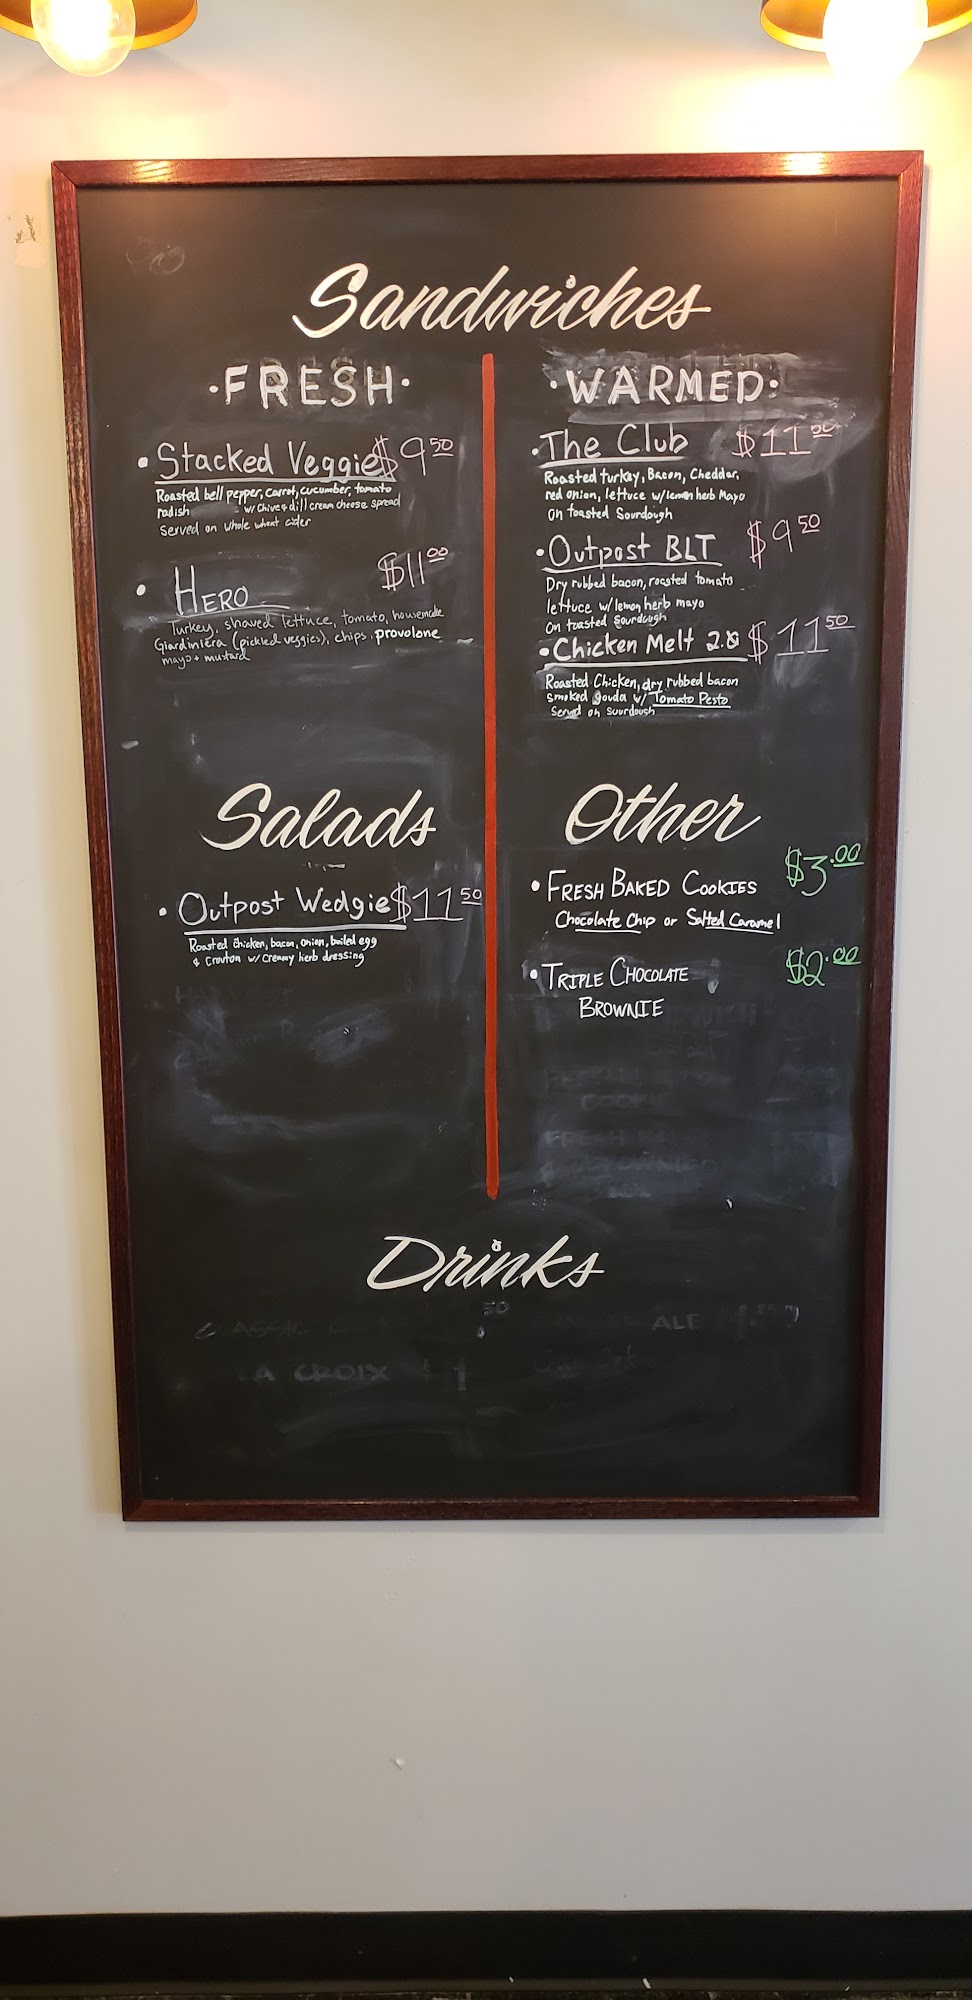 Sandwiches
·FRESH·
• Stacked Veggie $9 50
Roasted bell pepper, carrot, cucumber, tomato
radish w/ Chive & dill cream cheese spread
Served on whole wheat cider
• HERO $11 00
Turkey, shaved lettuce, tomato, housemade
Giardiniera (pickled veggies), chips, provolone
mayo + mustard
·WARMED·
• The Club $11 00
Roasted turkey, Bacon, Cheddar,
red onion, lettuce w/ lemon herb Mayo
on toasted Sourdough
• Outpost BLT $9 50
Dry rubbed bacon, roasted tomato
lettuce w/ lemon herb mayo
on toasted sourdough
• Chicken Melt 2.0 $11 50
Roasted Chicken, dry rubbed bacon
smoked gouda w/ Tomato Pesto
Served on sourdough
Salads
• Outpost Wedgie $11 50
Roasted chicken, bacon, onion, boiled egg
& crouton w/ Creamy herb dressing
Other
• FRESH BAKED COOKIES $3.00
Chocolate Chip or Salted Caramel
• TRIPLE CHOCOLATE $2.00
BROWNIE
Drinks
ALE
CROIX